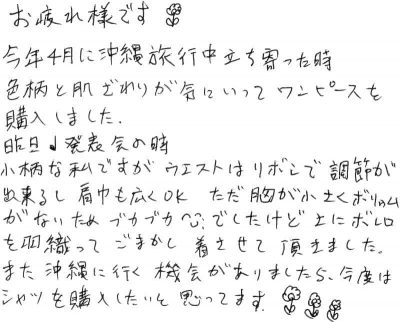 お疲れ様です
今年4月に沖縄旅行中立ち寄った時
色柄と肌ざわりが気にいって ワンピースを
購入しました.
昨日♩発表会の時
小柄な私ですが ウエストは リボンで 調節が
出来るし 肩巾も広くOK ただ 胸が小さくボリゥム
がないため ブカブカ でしたけど 上に ボレロ
を羽織って ごまかし 着させて 頂きました.
また 沖縄に行く 機会がありましたら、今度は
シャツを購入したいと 思ってます.